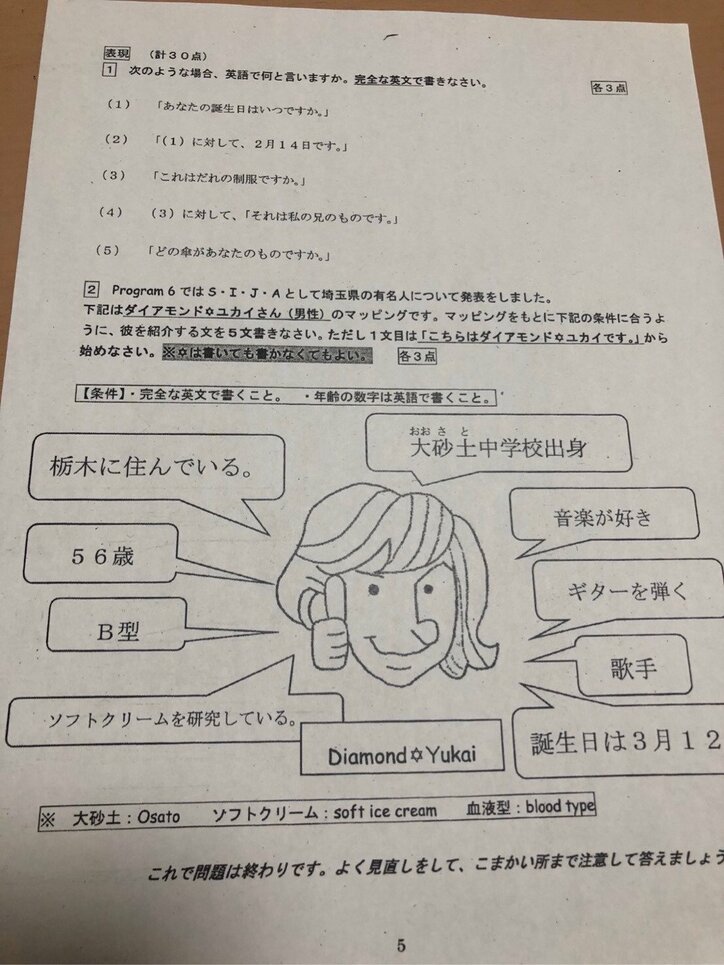 表現 (計30点)
1 次のような場合、英語で何と言いますか。完全な英文で書きなさい。 各3点
(1) 「あなたの誕生日はいつですか。」
(2) 「(1)に対して、2月14日です。」
(3) 「これはだれの制服ですか。」
(4) (3)に対して、「それは私の兄のものです。」
(5) 「どの傘があなたのものですか。」
2 Program 6ではS・I・J・Aとして埼玉県の有名人について発表をしました。
下記はダイアモンド✡ユカイさん(男性)のマッピングです。マッピングをもとに下記の条件に合うよ
うに、彼を紹介する文を5文書きなさい。ただし1文目は「こちらはダイアモンド✡ユカイです。」から
始めなさい。※✡は書いても書かなくてもよい。 各3点
【条件】・完全な英文で書くこと。 ・年齢の数字は英語で書くこと。
おおさと
大砂土中学校出身
栃木に住んでいる。
音楽が好き
56歳
ギターを弾く
B型
歌手
ソフトクリームを研究している。
誕生日は3月12
Diamond✡Yukai
※ 大砂土:Osato ソフトクリーム:soft ice cream 血液型:blood type
これで問題は終わりです。よく見直しをして、こまかい所まで注意して答えましょう
5